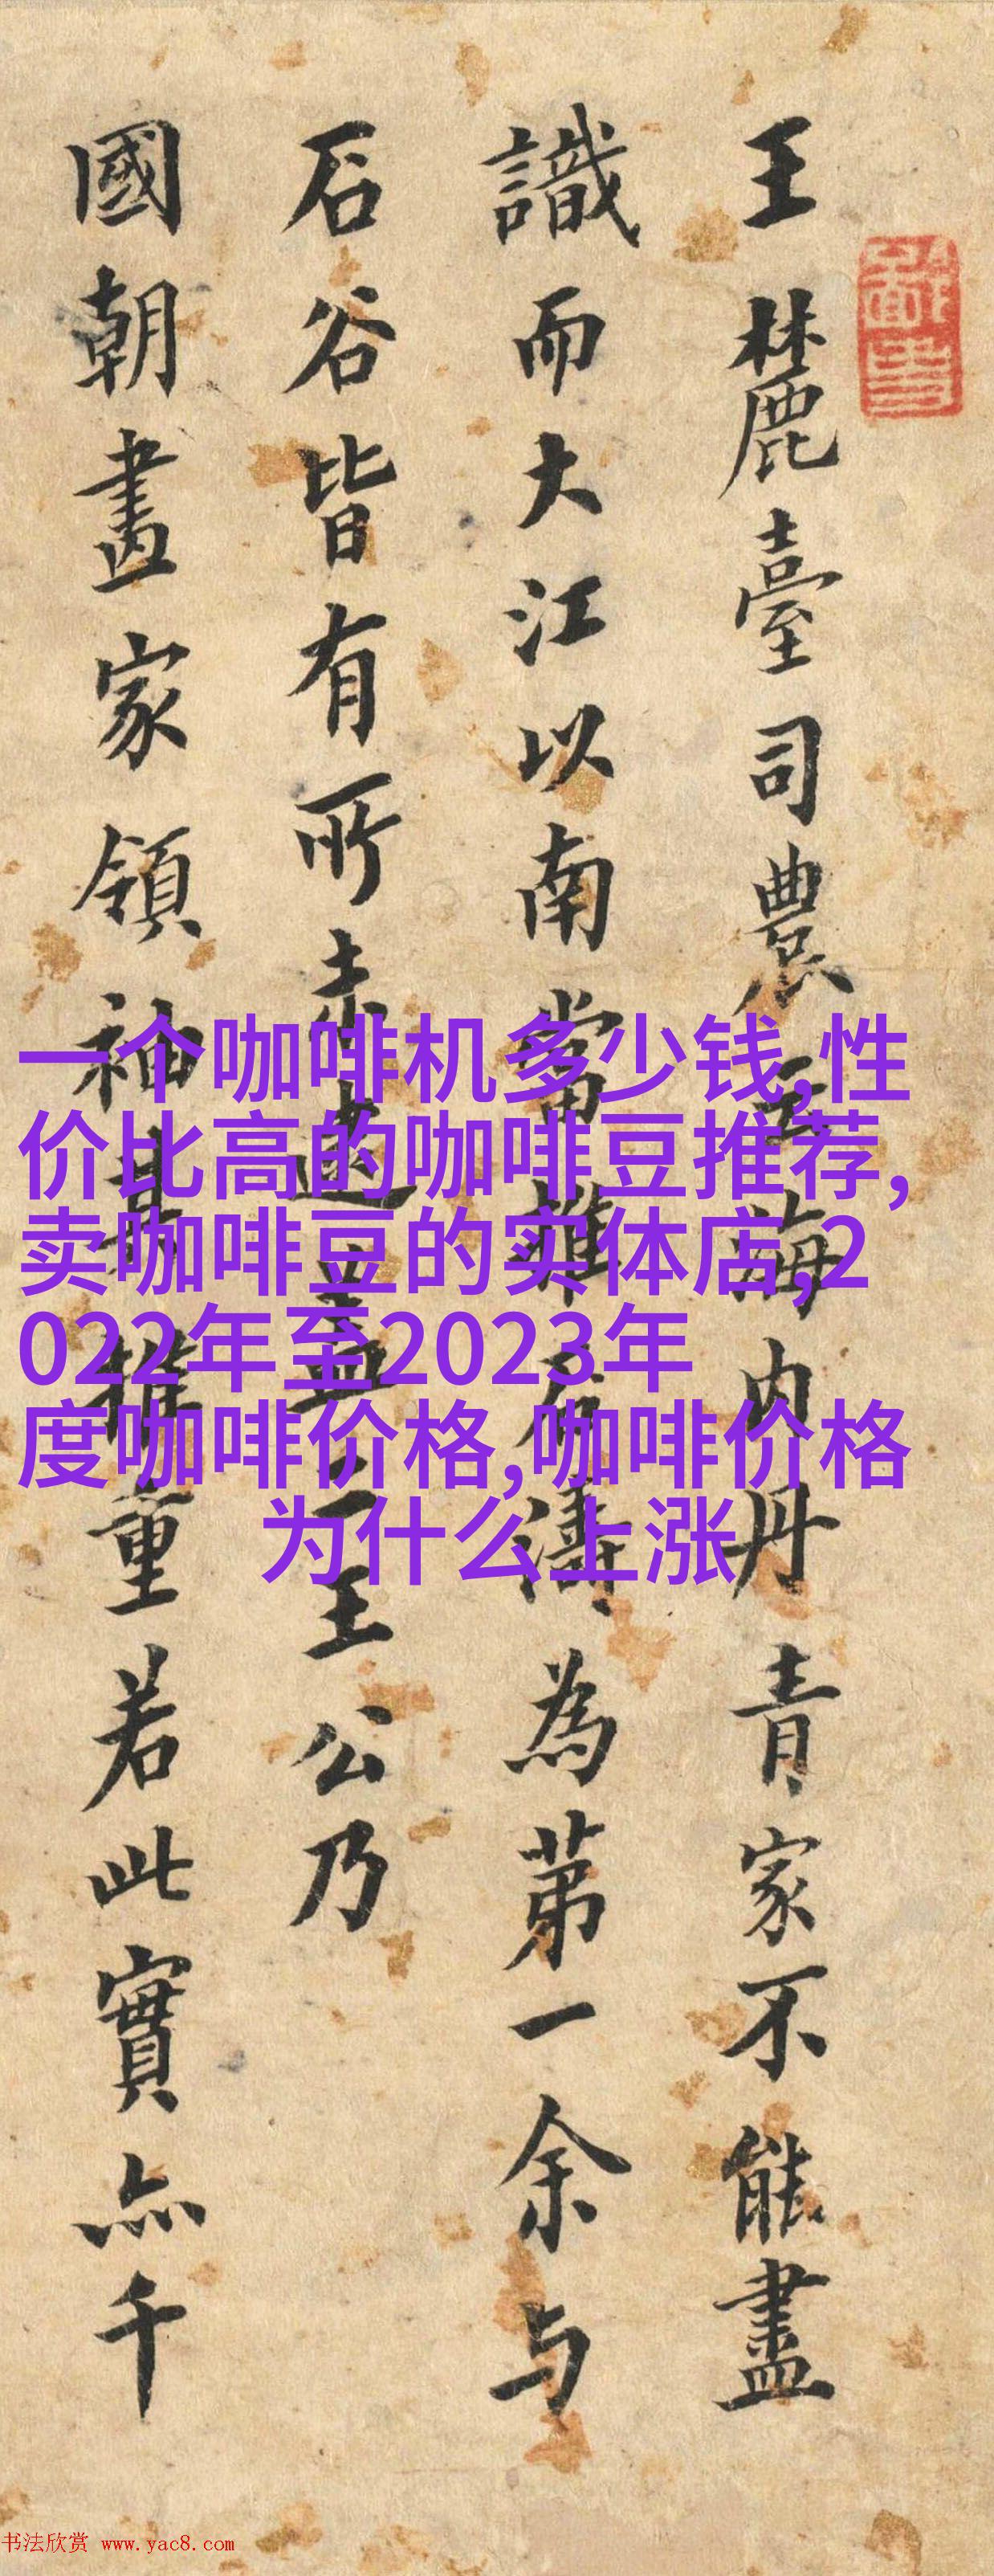 王麓臺司農云海内丹青家不能盡
識而大江以南當推石濤為第一余与
石谷皆有所未逮蓋二王公乃
國朝畫家領袖其推重若此實亦千
一个咖啡机多少钱,性
价比高的咖啡豆推荐,
卖咖啡豆的实体店,2
022年至2023年
度咖啡价格,咖啡价格
为什么上涨
书法欣赏 www.yac8.com